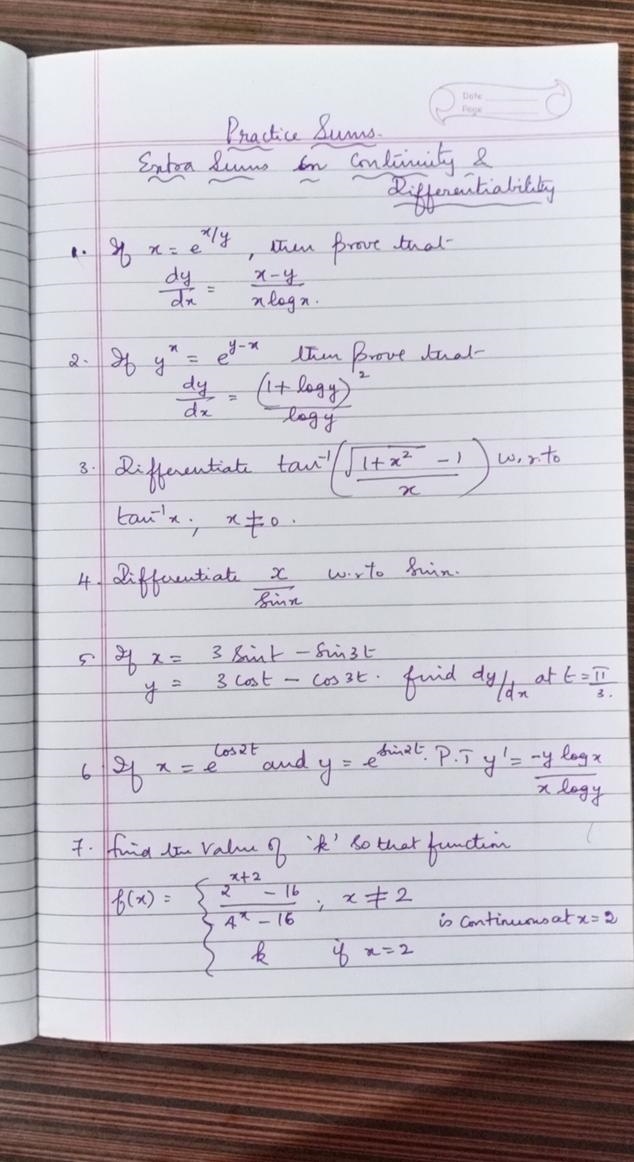 Date
Page
Practice Sums.
Extra Sums on Continuity &
Differentiability
1. If x = e^(x/y), then prove that
dy/dx = (x-y)/(x log x).
2. If y^x = e^(y-x) then prove that
dy/dx = (1+ log y)^2/log y
3. Differentiate tan^-1((√(1+x^2) - 1)/x) w.r.to
tan^-1 x; x ≠ 0.
4. Differentiate x/sin x w.r.to sin x.
5. If x = 3 sint - sin3t
y = 3 cost - cos 3t. find dy/dx at t = π/3.
6 If x = e^(cos2t) and y = e^(sin2t). P.T y' = (-y log x)/(x log y)
7. find the value of 'k' so that function
f(x) = { (2^(x+2) - 16)/(4^x - 16); x ≠ 2
is continuous at x = 2
k if x = 2